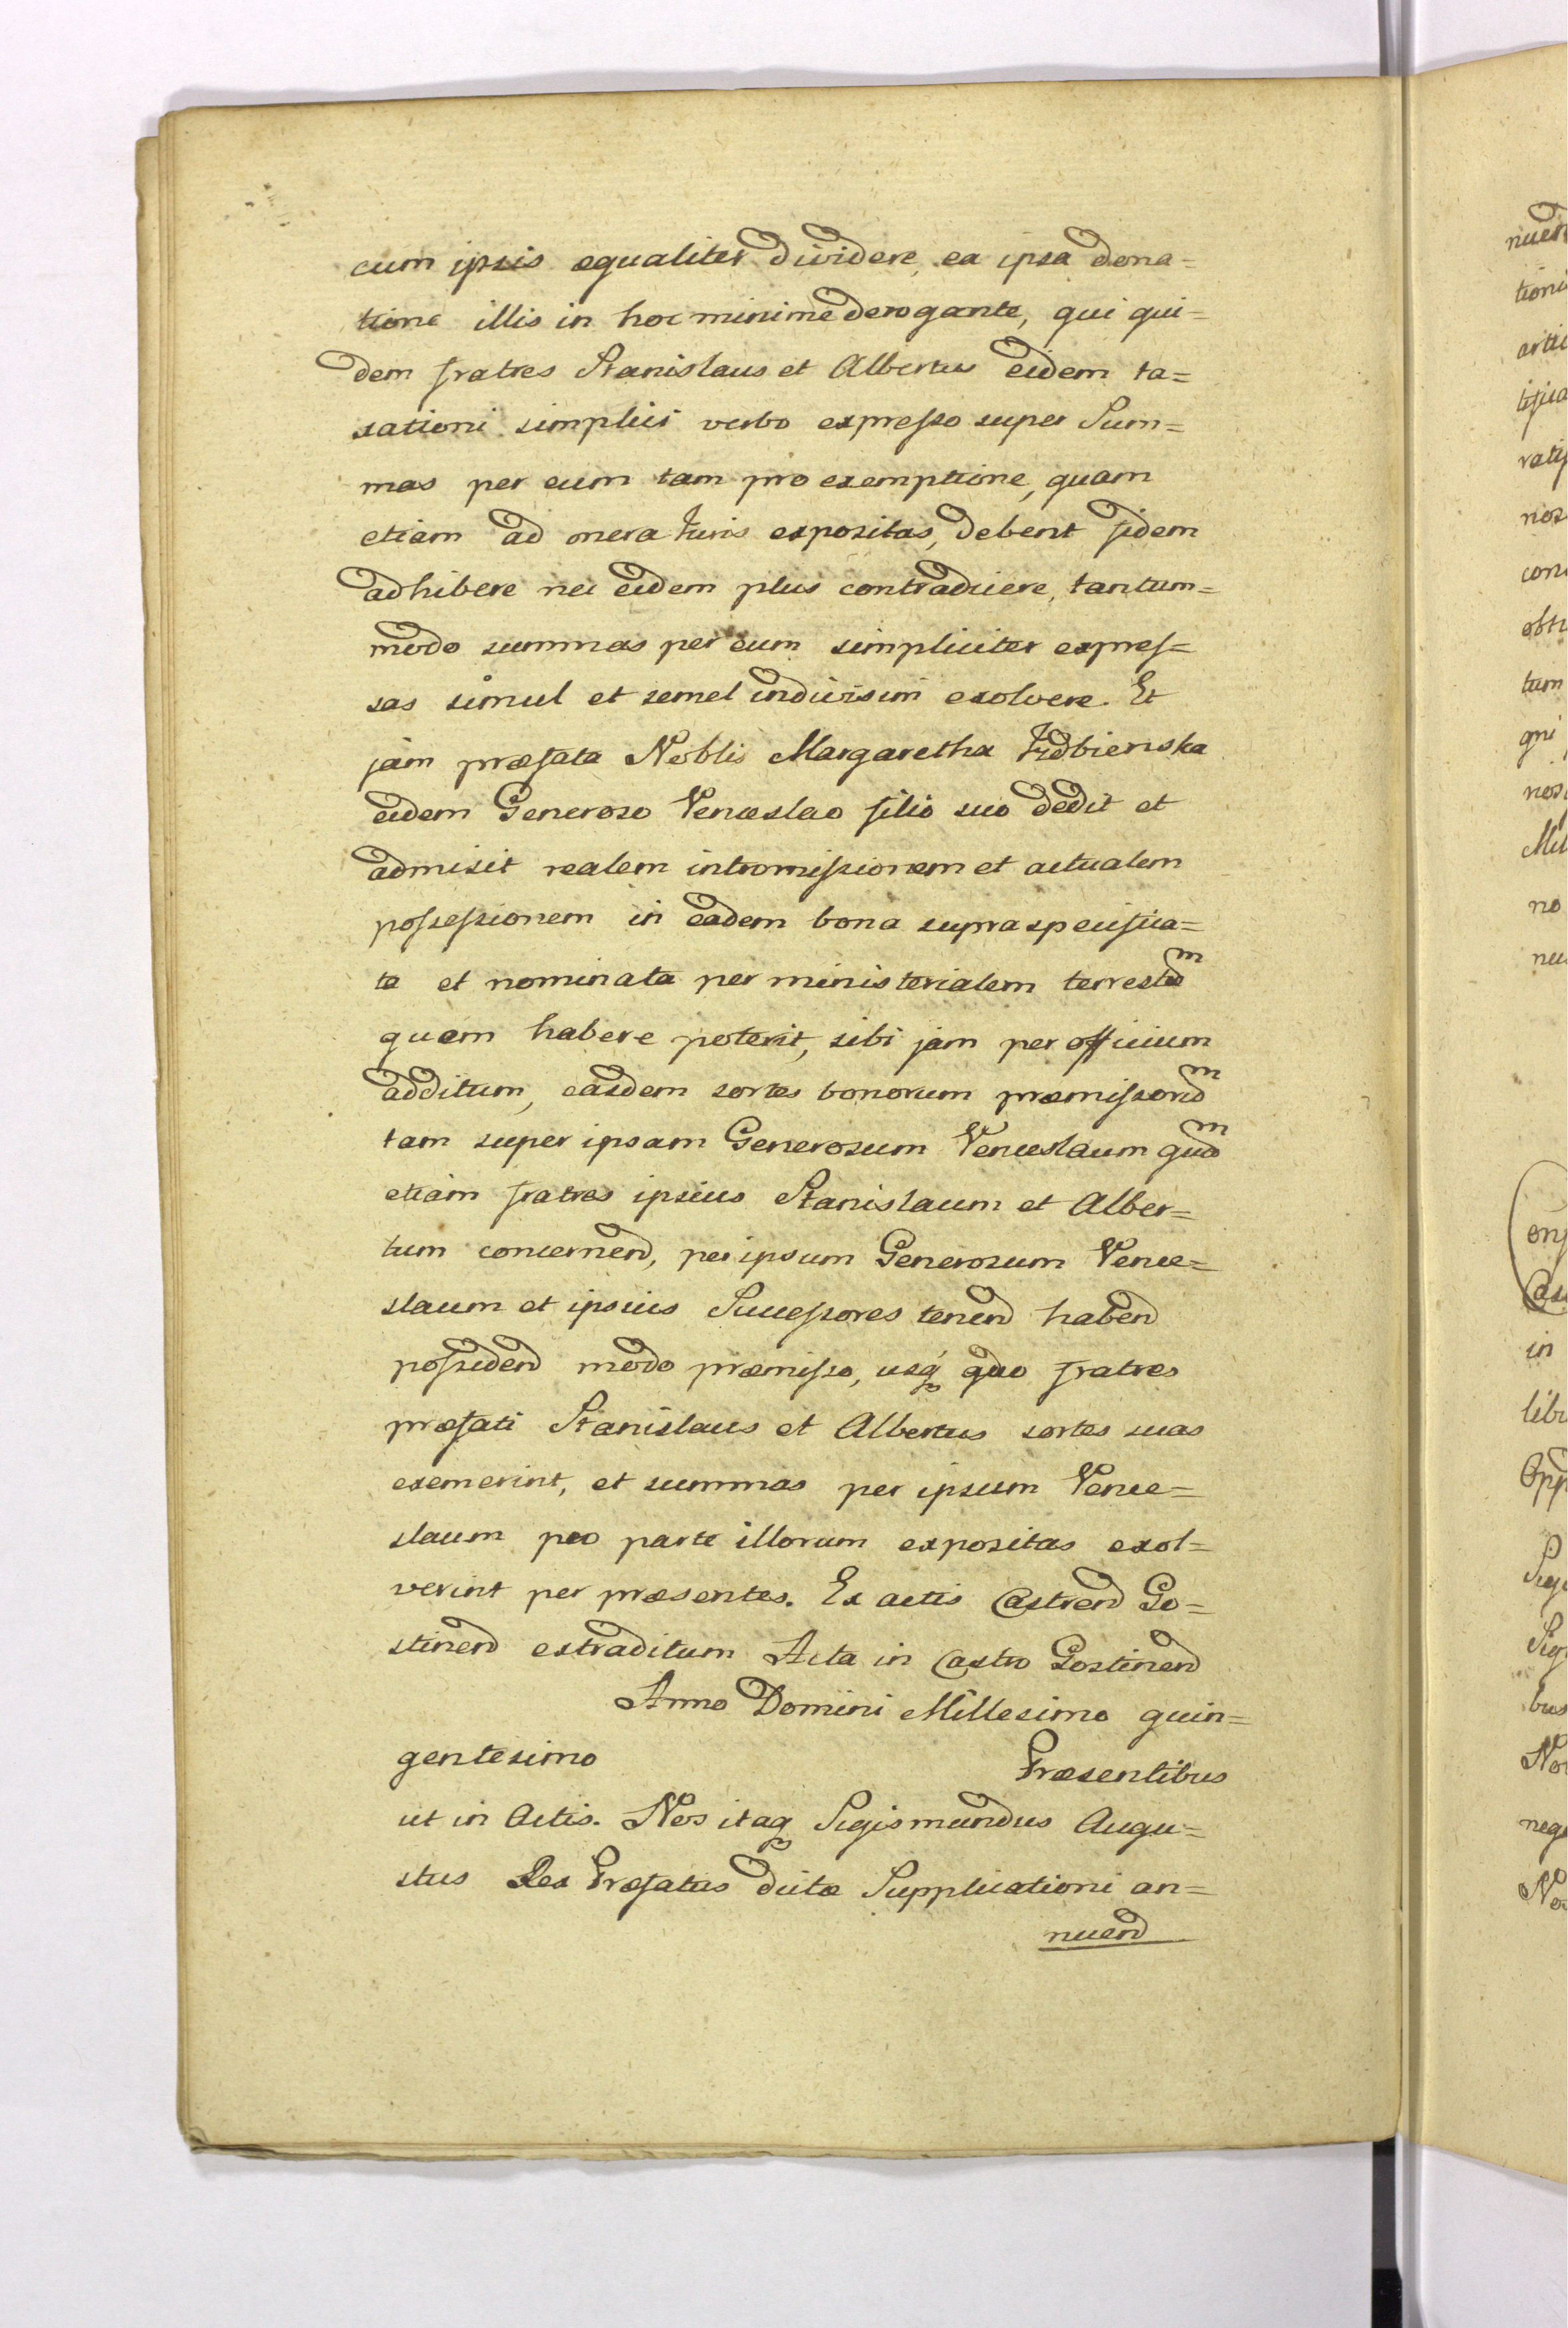 cum ipsis æqualiter dividere, ea ipsa dona=
tione illis in hoc minime derogante, qui qui=
dem fratres Stanislaus et Albertus eidem ta=
xationi simplici verbo expresso super Sum=
mas per eum tam pro exemptione, quam
etiam ad onera Juris expositas, debent fidem
adhibere nec eidem plus contradicere, tantum=
modo summas per eum simpliciter expres=
sas simul et semel indivisim exolvere. Et
jam præfata Noblis Margaretha Jzdbienska
eidem Generoso Venceslao filio suo dedit et
admisit realem intromissionem et actualem
possessionem in eadem bona supraspecifica=
ta et nominata per ministerialem terrestrem
quem habere poterit, sibi jam per officium
additum, easdem sortes bonorum præmissord m
tam super ipsam Generosum Venceslaum quam
etiam fratres ipsius Stanislaum et Alber=
tum concernend, per ipsum Generosum Vence=
slaum et ipsius Successores tenend habend
possidend modo præmisso, usq quo fratres
præfati Stanislaus et Albertus sortes suas
exemerint, et summas per ipsum Vence=
slaum pro parte illorum expositas exol=
verint per præsentes. Ex actis Castrend Go=
stinend extraditum Acta in Castro Gostinend
Anno Domini Millesimo quin=
gentesimo Præsentibus
ut in Actis. Nos itaq Sigismundus Augu=
stus Rex Præfatus dictæ Supplicationi an=
nuend